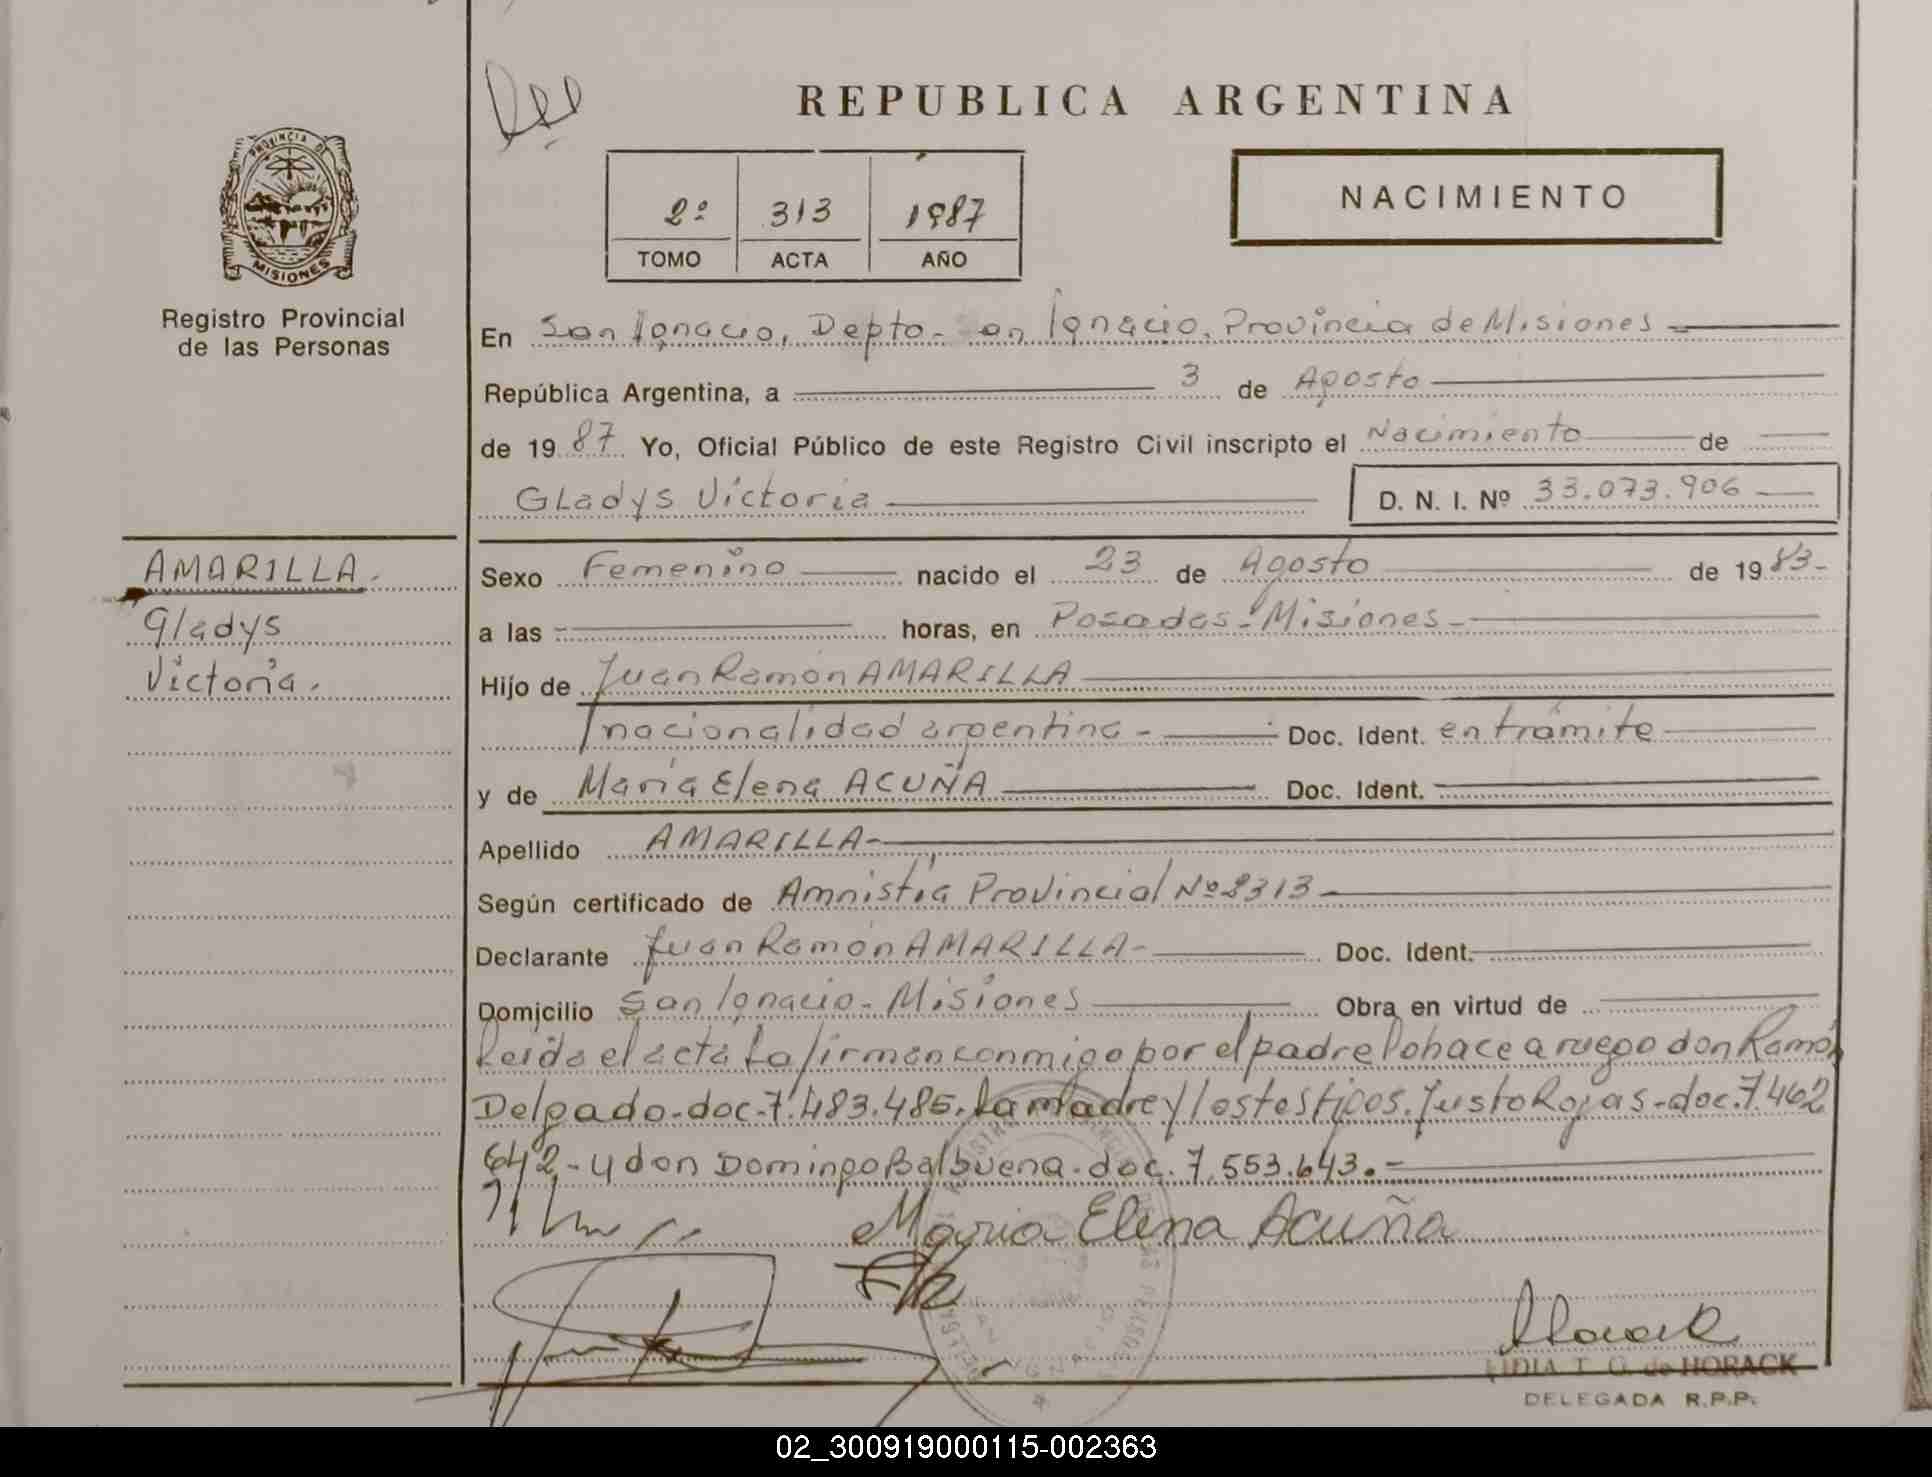 REPUBLICA ARGENTINA
PROVINCIA DE
MISIONES
Registro Provincial
de las Personas
2º 313 1987
TOMO ACTA AÑO
NACIMIENTO
En San Ignacio, Depto- San Ignacio, Provincia de Misiones
República Argentina, a 3 de Agosto
de 1987 Yo, Oficial Público de este Registro Civil inscripto el Nacimiento de
Gladys Victoria D. N. I. Nº 33.073.906
AMARILLA.
Gladys
Victoria.
Sexo Femenino nacido el 23 de Agosto de 1983-
a las horas, en Posadas-Misiones-
Hijo de Juan Ramón AMARILLA
nacionalidad argentina- Doc. Ident. en trámite
y de María Elena ACUÑA Doc. Ident.
Apellido AMARILLA-
Según certificado de Amnistía Provincial Nº 2313-
Declarante Juan Ramón AMARILLA- Doc. Ident.
Domicilio San Ignacio-Misiones Obra en virtud de
Leída el acta la firman conmigo por el padre lo hace a ruego don Ramón
Delgado-doc-7.483.485, la madre y los testigos. Justo Rojas-doc.7.462
642-y don Domingo Balbuena-doc.7.553.643.-
Maria Elena Acuña
Horack
LIDIA T. O. de HORACK
DELEGADA R.P.P.
02_300919000115-002363